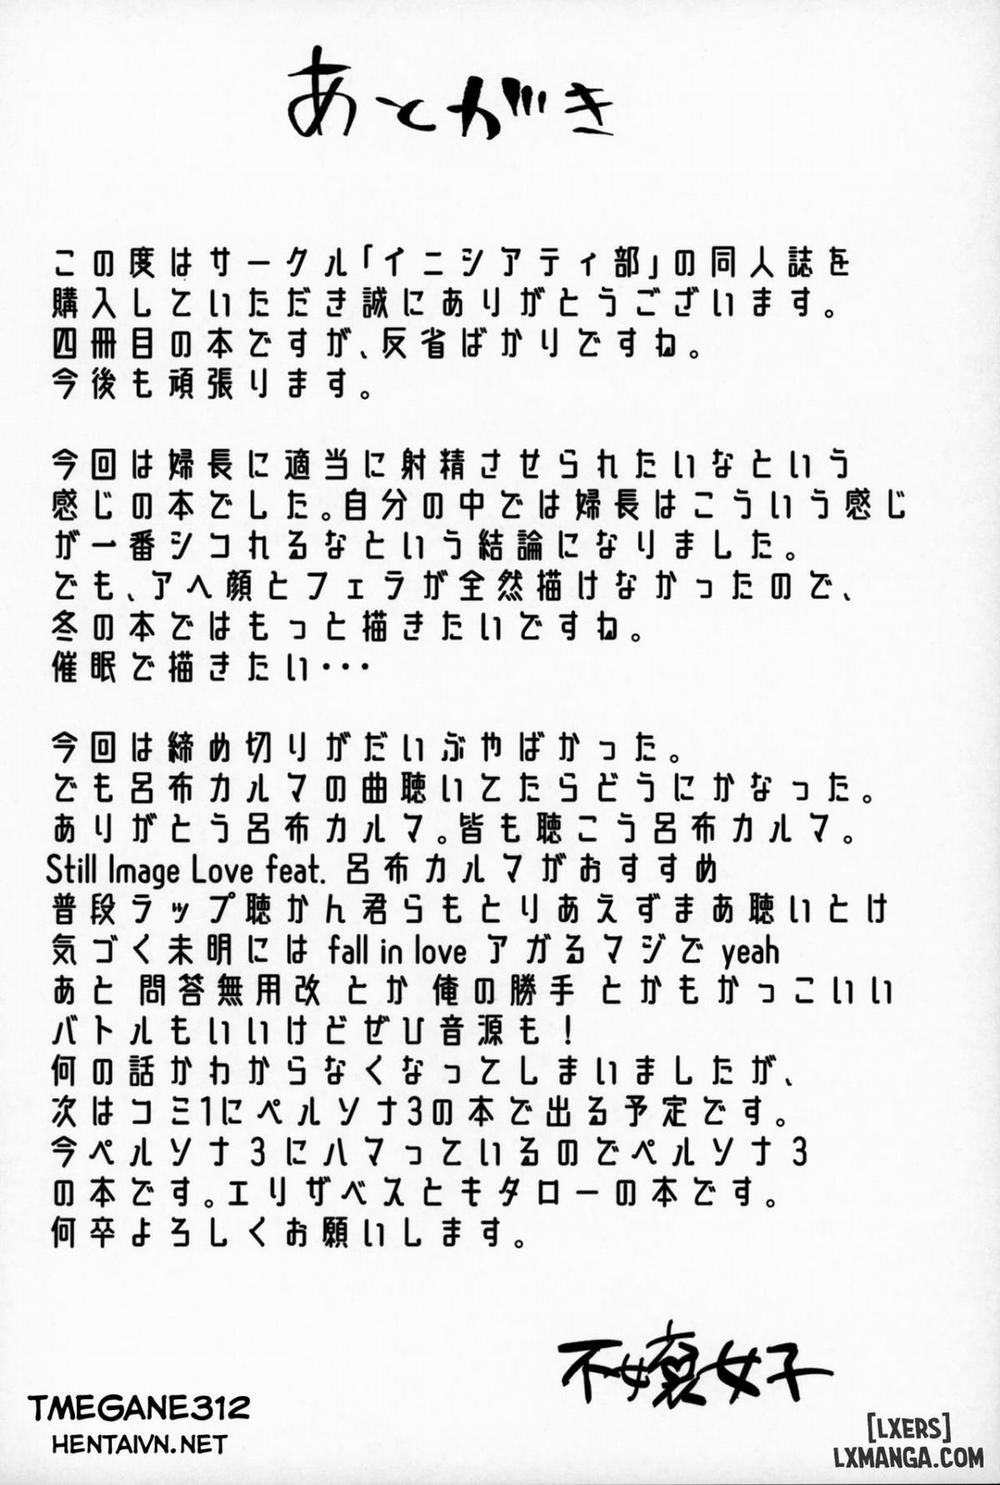 あとがき
この度はサークル「イニシアティ部」の同人誌を
購入していただき誠にありがとうございます。
四冊目の本ですが、反省ばかりですね。
今後も頑張ります。
今回は婦長に適当に射精させられたいなという
感じの本でした。自分の中では婦長はこういう感じ
が一番シコれるなという結論になりました。
でも、アヘ顔とフェラが全然描けなかったので、
冬の本ではもっと描きたいですね。
催眠で描きたい・・・
今回は締め切りがだいぶやばかった。
でも呂布カルマの曲聴いてたらどうにかなった。
ありがとう呂布カルマ。皆も聴こう呂布カルマ。
Still Image Love feat. 呂布カルマがおすすめ
普段ラップ聴かん君らもとりあえずまあ聴いとけ
気づく未明には fall in love アガるマジで yeah
あと 問答無用改 とか 俺の勝手 とかもかっこいい
バトルもいいけどぜひ音源も！
何の話かわからなくなってしまいましたが、
次はコミ1にペルソナ3の本で出る予定です。
今ペルソナ3にハマっているのでペルソナ3
の本です。エリザベスともタローの本です。
何卒よろしくお願いします。
不嬢女子
TMEGANE312
HENTAIVN.NET
[LXERS]
LXMANGA.COM